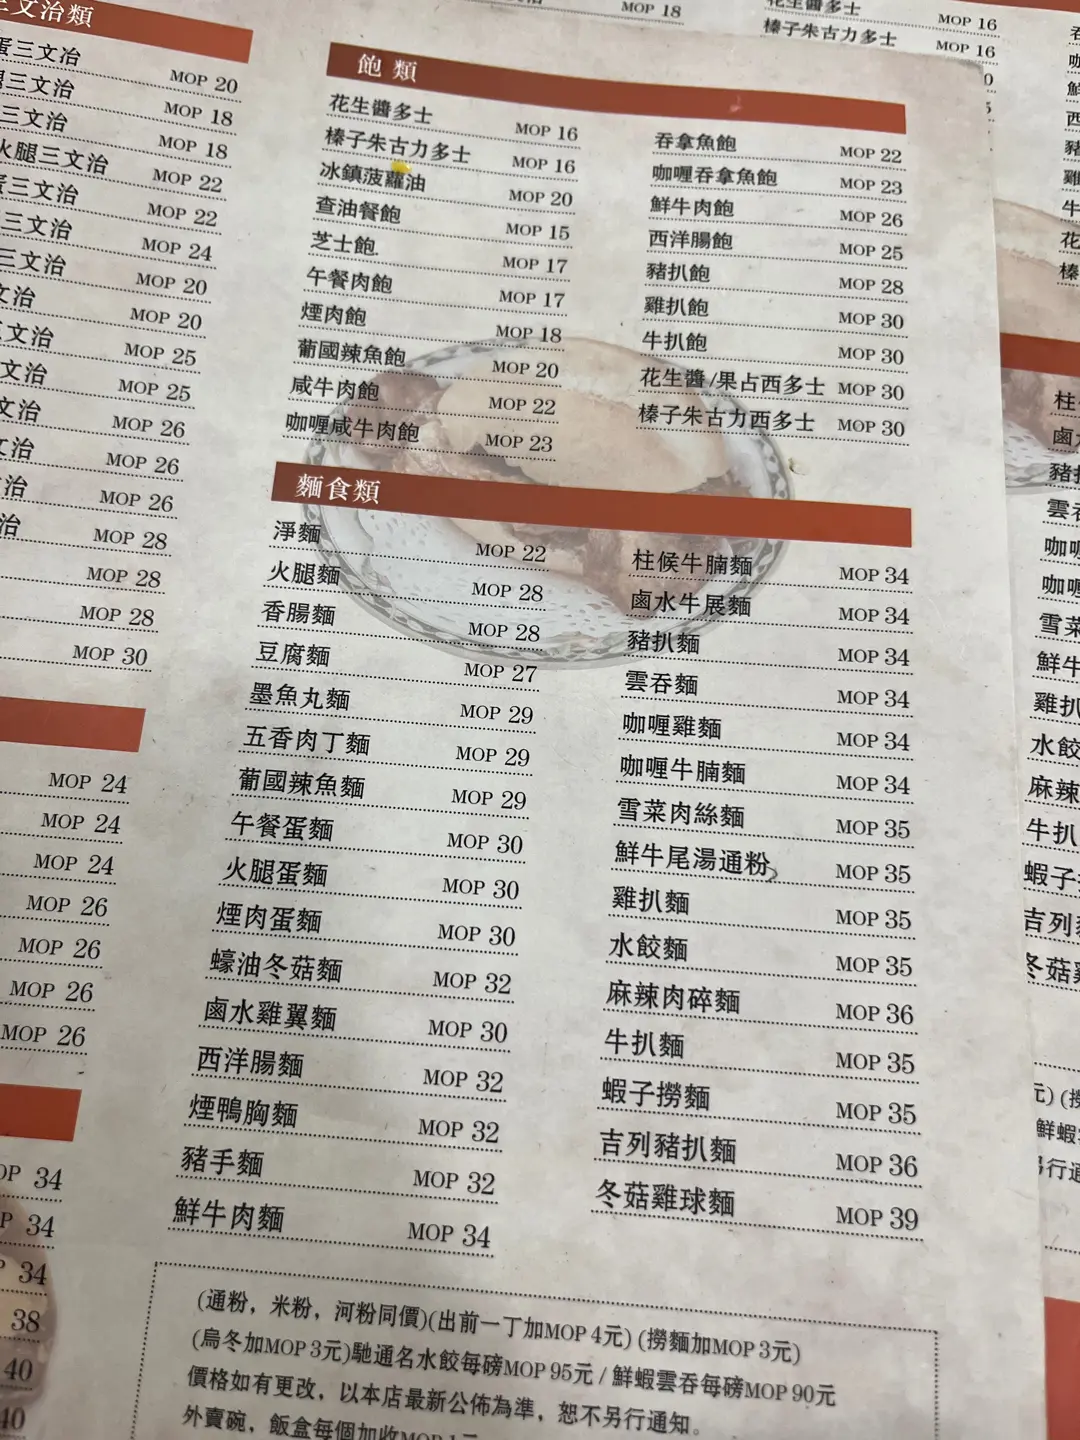 三文治類
蛋三文冶 MOP 20
三文冶 MOP 18
三文冶 MOP 18
火腿三文冶 MOP 22
蛋三文冶 MOP 22
三文冶 MOP 24
三文冶 MOP 20
文冶 MOP 20
文冶 MOP 25
文冶 MOP 25
文冶 MOP 26
文冶 MOP 26
冶 MOP 26
冶 MOP 28
MOP 28
MOP 28
MOP 30
MOP 24
MOP 24
MOP 24
MOP 26
MOP 26
MOP 26
MOP 26
OP 34
P 34
34
38
40
40
MOP 18
飽類
花生醬多士 MOP 16
榛子朱古力多士 MOP 16
冰鎮菠蘿油 MOP 20
查油餐飽 MOP 15
芝士飽 MOP 17
午餐肉飽 MOP 17
煙肉飽 MOP 18
葡國辣魚飽 MOP 20
咸牛肉飽 MOP 22
咖喱咸牛肉飽 MOP 23
吞拿魚飽 MOP 22
咖喱吞拿魚飽 MOP 23
鮮牛肉飽 MOP 26
西洋腸飽 MOP 25
豬扒飽 MOP 28
雞扒飽 MOP 30
牛扒飽 MOP 30
花生醬/果占西多士 MOP 30
榛子朱古力西多士 MOP 30
麵食類
淨麵 MOP 22
火腿麵 MOP 28
香腸麵 MOP 28
豆腐麵 MOP 27
墨魚丸麵 MOP 29
五香肉丁麵 MOP 29
葡國辣魚麵 MOP 29
午餐蛋麵 MOP 30
火腿蛋麵 MOP 30
煙肉蛋麵 MOP 30
蠔油冬菇麵 MOP 32
鹵水雞翼麵 MOP 30
西洋腸麵 MOP 32
煙鴨胸麵 MOP 32
豬手麵 MOP 32
鮮牛肉麵 MOP 34
柱候牛腩麵 MOP 34
鹵水牛展麵 MOP 34
豬扒麵 MOP 34
雲吞麵 MOP 34
咖喱雞麵 MOP 34
咖喱牛腩麵 MOP 34
雪菜肉絲麵 MOP 35
鮮牛尾湯通粉 MOP 35
雞扒麵 MOP 35
水餃麵 MOP 35
麻辣肉碎麵 MOP 36
牛扒麵 MOP 35
蝦子撈麵 MOP 35
吉列豬扒麵 MOP 36
冬菇雞球麵 MOP 39
(通粉，米粉，河粉同價)(出前一丁加MOP 4元) (撈麵加MOP 3元)
(烏冬加MOP 3元)馳通名水餃每磅MOP 95元 / 鮮蝦雲吞每磅MOP 90元
價格如有更改，以本店最新公佈為準，恕不另行通知。
外賣碗，飯盒每個加收MOP 1元
花生醬多士 MOP 16
榛子朱古力多士 MOP 16
吞
咖
鮮
西
豬
雞
牛
花
榛
柱
鹵
豬扒
雲吞
咖喱
咖喱
雪菜
鮮牛
雞扒
水餃
麻辣
牛扒
蝦子
吉列豬
冬菇雞
元) (撈
鮮蝦
另行通